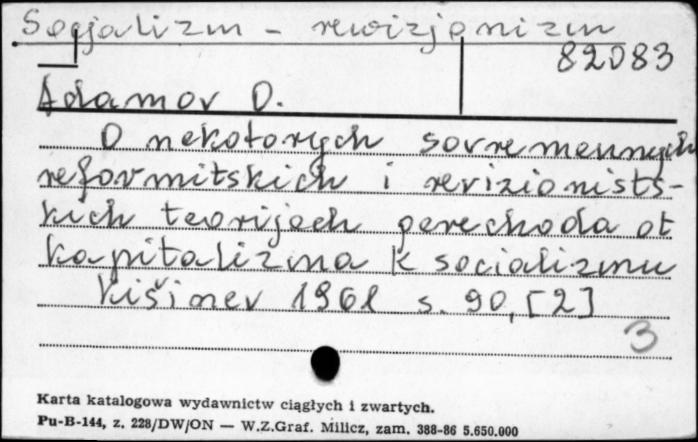 Socjalizm - rewizjonizm
82083
Adamov D.
O nekotorych sovremennych
reformitskich i revizionists-
kich teorijach perechoda ot
kapitalizma k socializmu
Kišinev 1961 s. 90, [2]
3
Karta katalogowa wydawnictw ciągłych i zwartych.
Pu-B-144, z. 228/DW/ON — W.Z.Graf. Milicz, zam. 388-86 5.650.000